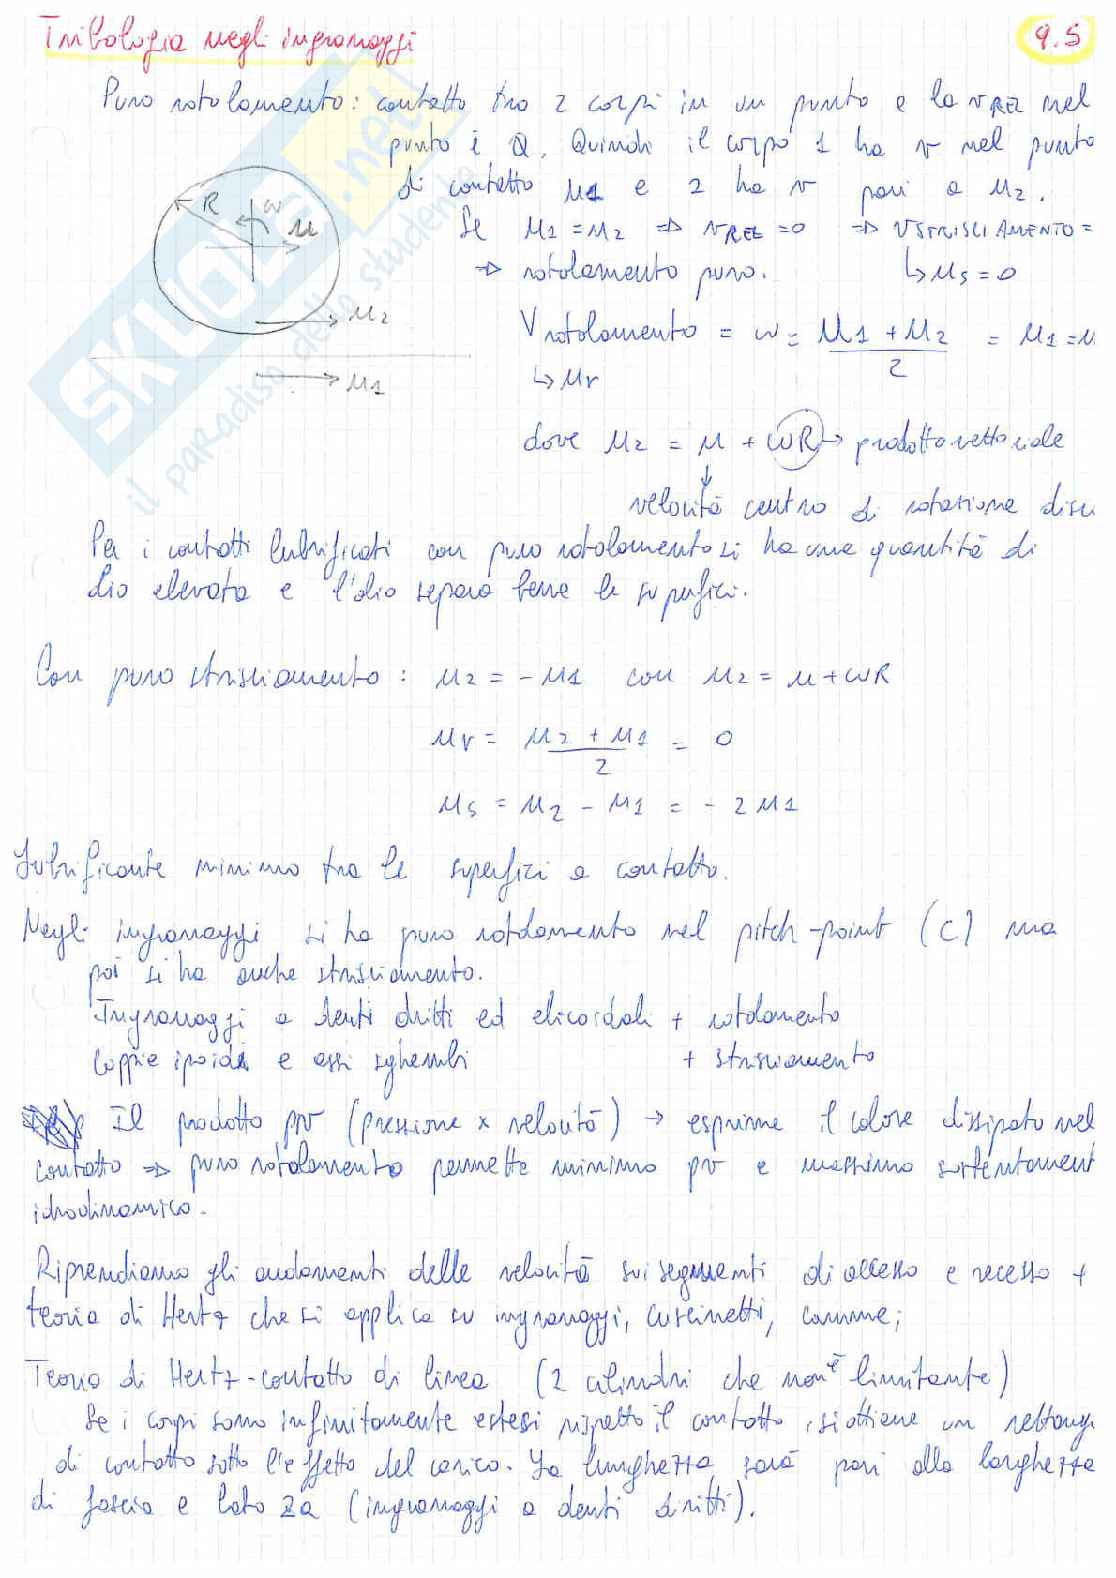 Tribologia negli ingranaggi
9.5
Puro rotolamento: contatto tra 2 corpi in un punto e la vREL nel
punto è Q. Quindi il corpo 1 ha v nel punto
di contatto u1 e 2 ha v pari a u2.
Se u1 = u2 ⇒ vREL = 0 ⇒ VSTRISCIAMENTO =
⇒ rotolamento puro. ↳ us = 0
R ω u
u2
u1
Vrotolamento = w = (u1 + u2)/2 = u1 = u
↳ ur
dove u2 = u + ωR → prodotto vettoriale
↓
velocità centro di rotazione disc
Per i contatti lubrificati con puro rotolamento si ha una quantità di
olio elevata e l'olio separa bene le superfici.
Con puro strisciamento: u2 = - u1 con u2 = u + ωR
ur = (u2 + u1)/2 = 0
us = u2 - u1 = - 2 u1
Lubrificante minimo tra le superfici a contatto.
Negli ingranaggi si ha puro rotolamento nel pitch-point (C) ma
poi si ha anche strisciamento.
Ingranaggi a denti dritti ed elicoidali + rotolamento
Coppie ipoidi e assi sghembi + strisciamento
Il prodotto pv (pressione x velocità) → esprime il calore dissipato nel
contatto ⇒ puro rotolamento permette minimo pv e massimo sostentament
idrodinamico.
Riprendiamo gli andamenti delle velocità sui segmenti di accesso e recesso +
teoria di Hertz che si applica su ingranaggi, cuscinetti, camme;
Teoria di Hertz - contatto di linea (2 cilindri che non è limitante)
Se i corpi sono infinitamente estesi rispetto il contatto, si ottiene un rettang
di contatto sotto l'effetto del carico. La lunghezza sarà pari alla larghezza
di fascia e lato 2a (ingranaggi a denti diritti).
SKUOLA.net
il paradiso dello studente